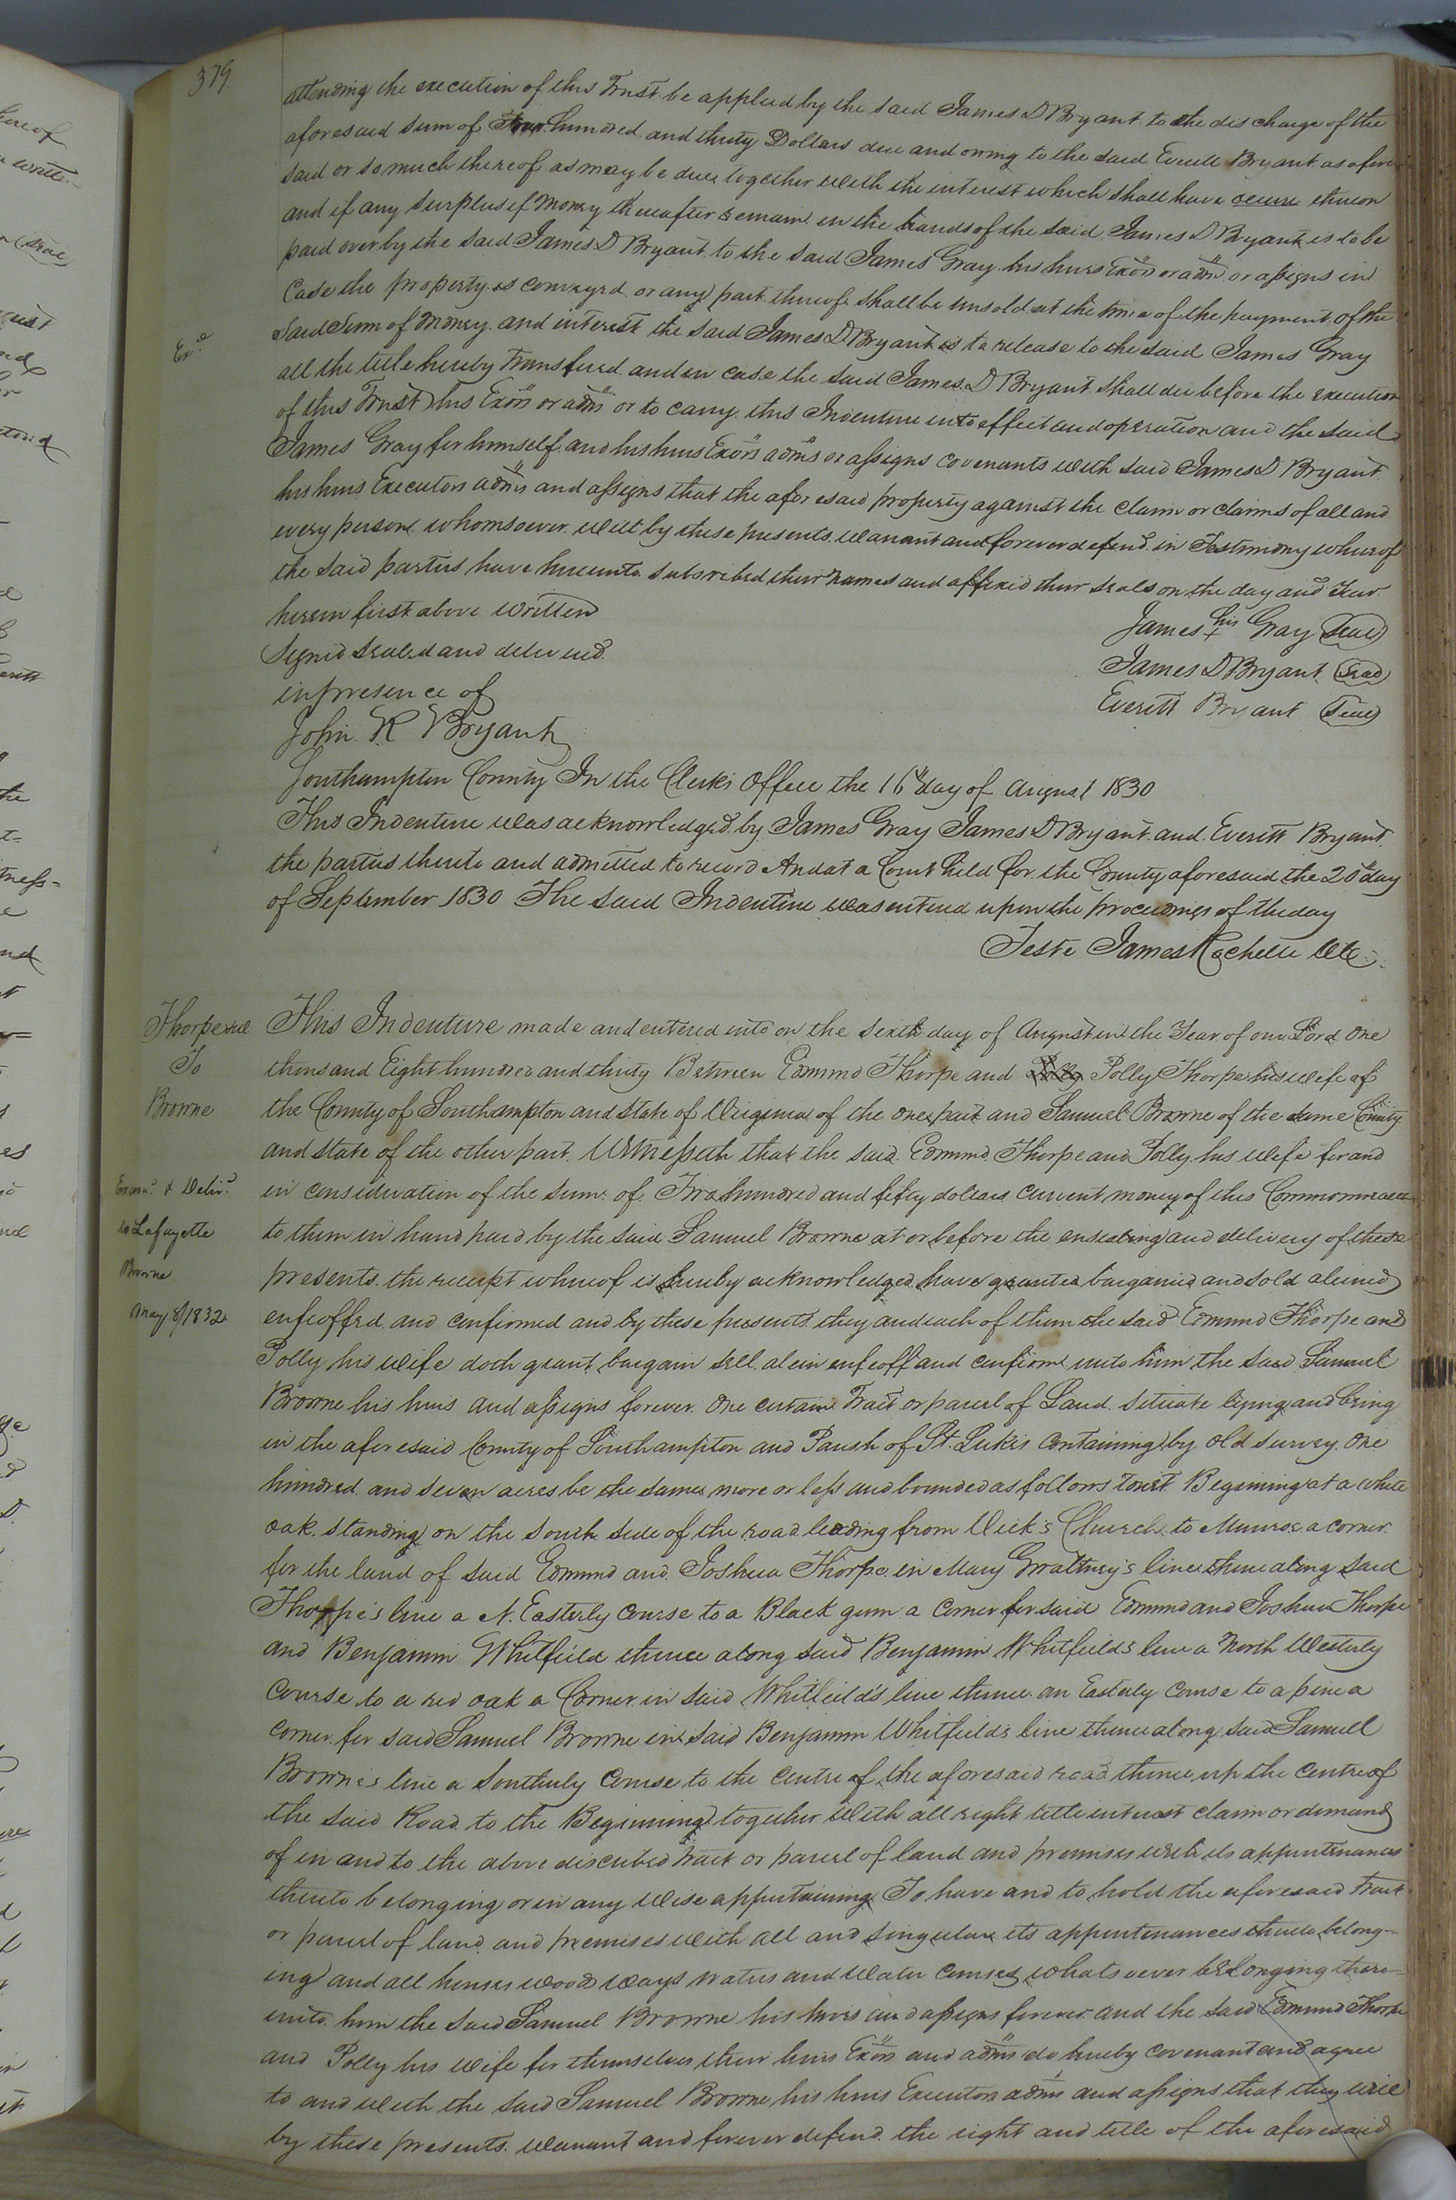 379
attending the execution of this Trust be applied by the said James D Bryant to the discharge of the
aforesaid sum of hundred and thirty Dollars due and owing to the said Everett Bryant as afore
said or so much thereof as may be due together with the interest which shall have accrue thereon
and if any surplus of Money thereafter remain in the hands of the said James D Bryant is to be
paid over by the said James D Bryant to the said James Gray his heirs Exors or adms or assigns in
Case the property as conveyed or any part thereof shall be unsold at the time of the payment of the
said Sum of Money and interest the said James D Bryant is to release to the said James Gray
Ex.d
all the title hereby transfered and in case the said James D Bryant shall die before the execution
of this Trust his Exors or adms or to carry this Indenture into effect and operation and the said
James Gray for himself and his heirs Exors adms or assigns covenants with said James D Bryant
his heirs Executors adms and assigns that the aforesaid property against the claim or claims of all and
every person whomsoever will by these presents warrant and forever defend in Testimony whereof
the said parties have hereunto subscribed their names and affixed their seals on the day and Year
herein first above written
James his x Gray (Seal)
Signed sealed and delivered
James D Bryant (Seal)
in presence of
Everett Bryant (Seal)
John R Bryant
Southampton County In the Clerks Office the 16th day of August 1830
This Indenture was acknowledged by James Gray James D Bryant and Everett Bryant
the parties thereto and admitted to record And at a Court held for the County aforesaid the 20th day
of September 1830 The said Indenture was entered upon the proceedings of the day
Teste James Rochelle
Thorpe &
To
Browne
Exam.d & Deliv.d
to Lafayette
Browne
May 8/1832
This Indenture made and entered into on the sixth day of August in the Year of our Lord One
thousand Eight hundred and thirty Between Edmund Thorpe and Polly Thorpe his wife of
the County of Southampton and State of Virginia of the one part and Samuel Browne of the same County
and State of the other part Witnesseth that the said Edmund Thorpe and Polly his wife for and
in consideration of the sum of Two hundred and fifty dollars current money of this Commonwealth
to them in hand paid by the said Samuel Browne at or before the ensealing and delivery of these
presents the receipt whereof is hereby acknowledged have granted bargained and sold aliened
enfeoffed and confirmed and by these presents they and each of them the said Edmund Thorpe and
Polly his wife doth grant bargain sell alein enfeoff and confirm unto him the said Samuel
Browne his heirs and assigns forever One certain Tract or parcel of Land situate lying and being
in the aforesaid County of Southampton and Parish of St. Lukes containing by old survey One
hundred and seven acres be the same more or less and bounded as follows towit Beginning at a white
oak standing on the South side of the road leading from Vick's Church to Munroe a corner
for the land of said Edmund and Joshua Thorpe in Mary Gwaltney's line thence along said
Thorpe's line a N. Easterly Course to a Black gum a corner for said Edmund and Joshua Thorpe
and Benjamin Whitfield thence along said Benjamin Whitfield's line a North Westerly
Course to a red oak a Corner in said Whitfeild's line thence an Easterly Course to a pine a
corner for said Samuel Browne in said Benjamin Whitfield's line thence along said Samuel
Browne's line a Southerly Course to the centre of the aforesaid road thence up the centre of
the said Road to the Beginning together with all right title interest claim or demand
of in and to the above discribed tract or parcel of land and premises with its appurtenances
thereto belonging or in any wise appertaining To have and to hold the aforesaid tract
or parcel of land and premises with all and singular its appurtenances thereto belong-
ing and all houses woods ways waters and water courses whatsoever belonging there-
unto him the said Samuel Browne his heirs and assigns forever and the said Edmund Thorpe
and Polly his wife for themselves their heirs Exors and adms do hereby covenant and agree
to and with the said Samuel Browne his heirs Executors adms and assigns that they will
by these presents warrant and forever defend the right and title of the aforesaid